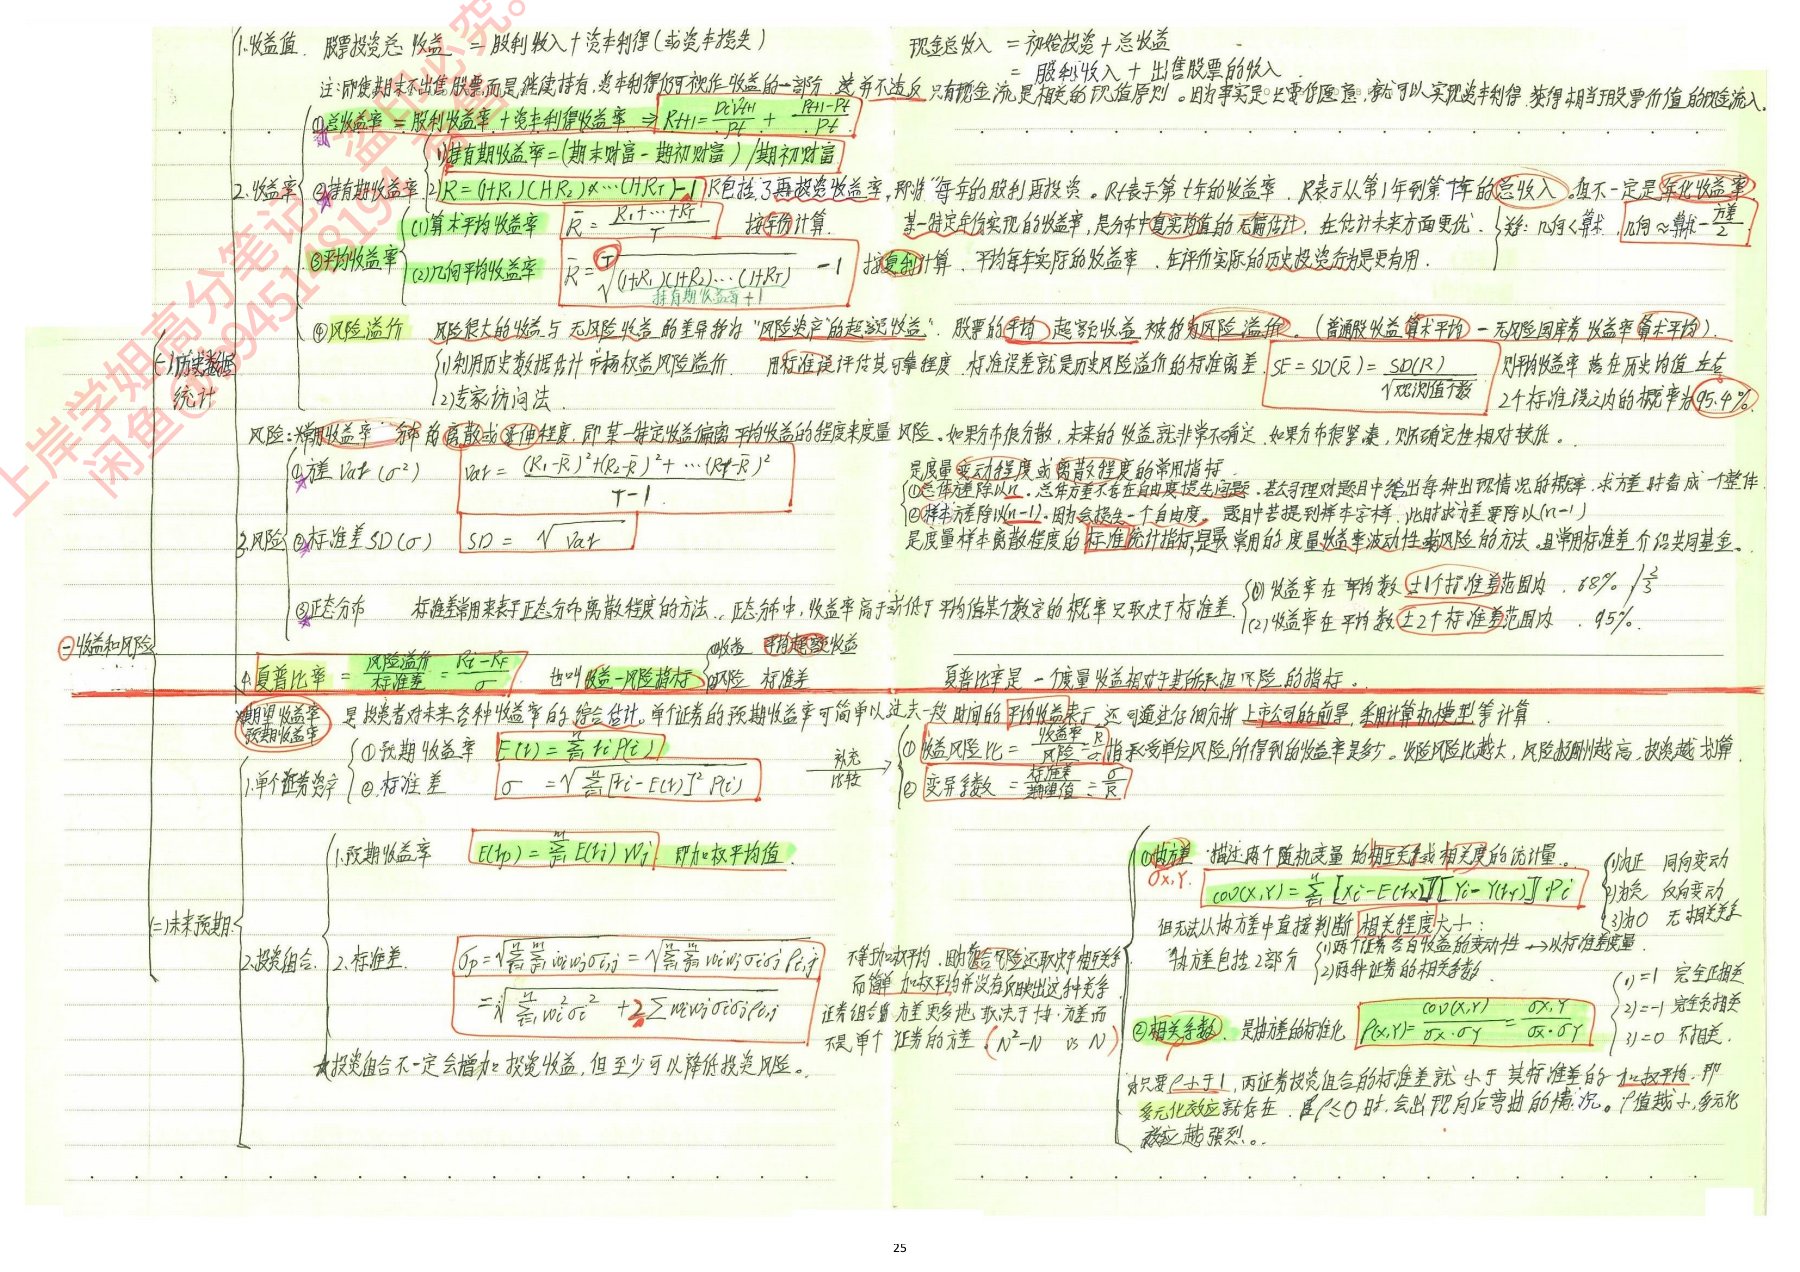 1.收益值. 股票投资总收益 = 股利收入 + 资本利得(或资本损失)
现金总收入 = 初始投资 + 总收益
= 股利收入 + 出售股票的收入
注:即使期末不出售股票,而是继续持有,资本利得仍可视作收益的一部分,这并不违反只有现金流是相关的现值原则。因为事实是只要你愿意,就可以实现资本利得,获得相当于股票价值的现金流入。
2.收益率
①总收益率 = 股利收益率 + 资本利得收益率 ⇒ Rt+1 = Divt+1/Pt + (Pt+1-Pt)/Pt
②持有期收益率
1)持有期收益率=(期末财富-期初财富)/期初财富
2) R=(1+R1)(1+R2)×…(1+RT)-1 R包括了再投资收益率,即将"每年的股利再投资。Rt表示第t年的收益率,R表示从第1年到第T年的总收入。但不一定是年化收益率
③平均收益率
(1)算术平均收益率 R̄ = (R1+…+RT)/T 按年份计算.
某一特定年份实现的收益率,是分布中真实均值的无偏估计,在估计未来方面更优.
关系: 几何<算术, 几何≈算术-方差/2
(2)几何平均收益率 R̄ = T√(1+R1)(1+R2)…(1+RT) -1 按复利计算,平均每年实际的收益率,在评价实际的历史投资行为是更有用.
持有期收益率+1
④风险溢价 风险很大的收益与无风险收益的差异称为"风险资产"的超额收益". 股票的平均超额收益被称为风险溢价。(普通股收益算术平均-无风险国库券收益率算术平均).
(1)利用历史数据估计市场权益风险溢价 用标准误评估其可靠程度,标准误差就是历史风险溢价的标准离差. SE=SD(R̄)=SD(R)/√观测值个数 则平均收益率落在历史均值左右2个标准误之内的概率为95.4%.
(2)专家访问法.
(一)历史数据统计
风险:常用收益率分布的离散或延伸程度,即某一特定收益偏离平均收益的程度来度量风险。如果分布很分散,未来的收益就非常不确定,如果分布很紧凑,则不确定性相对较低。
3.风险
①方差Var(σ²) Var = ((R1-R̄)²+(R2-R̄)²+…(RT-R̄)²)/(T-1)
是度量变动程度或离散程度的常用指标.
①总体方差除以n. 总体方差不存在自由度损失问题.若公司理财题目中给出每种出现情况的概率,求方差时看成一个整体.
②样本方差除以(n-1).因为会损失一个自由度. 题目中若提到样本字样,此时求方差要除以(n-1)
②标准差SD(σ) SD = √Var 是度量样本离散程度的标准统计指标,是最常用的度量收益率波动性或风险的方法.且常用标准差介绍共同基金.
③正态分布 标准差常用来表示正态分布离散程度的方法.. 正态分布中,收益率高于或低于平均值某个数字的概率只取决于标准差.
(1)收益率在平均数±1个标准差范围内. 68% 2/3
(2)收益率在平均数±2个标准差范围内. 95%.
㊀收益和风险
4.夏普比率 = 风险溢价/标准差 = (Ri-RF)/σ 也叫收益-风险指标 ①收益 平均超额收益 ②风险 标准差
夏普比率是一个度量收益相对于其所承担风险的指标.
期望收益率 预期收益率 是投资者对未来各种收益率的综合估计.单个证券的预期收益率可简单以过去一段时间的平均收益表示,还可通过仔细分析上市公司的前景,采用计算机模型等计算.
1.单个证券资产
①预期收益率 E(r)=Σ ri P(i)
②标准差 σ = √Σ[ri-E(r)]² P(i)
补充 比较
①收益风险比 = 收益率/风险 = R/σ 指承受单位风险所得到的收益率是多少。收险风险比越大,风险报酬越高.投资越划算.
②变异系数 = 标准差/期望值 = σ/R
(二)未来预期:
2.投资组合.
1.预期收益率 E(rp)=Σ E(rj) Wj 即加权平均值.
2.标准差. σp=√ΣΣ wi wj σi,j = √ΣΣ wi wj σi σj ρi,j
= √Σ wi² σi² + 2Σ wi wj σi σj ρi,j
不等于加权平均.因为组合风险还取决于相关系
而简单加权平均并没有反映出这种关系.
证券组合的方差更多地取决于协方差而
不是单个证券的方差.(N²-N vs N)
★投资组合不一定会增加投资收益,但至少可以降低投资风险。
①协方差 σX,Y. 描述两个随机变量的相互关系或相关度的统计量。
COV(X,Y)=Σ[Xi-E(rX)][Yi-Y(rY)] Pi
1)为正 同向变动
2)为负 反向变动
3)为0 无相关关系
但无法从协方差中直接判断相关程度大小:
协方差包括2部分
1)两个证券各自收益的变动性→以标准差度量.
2)两种证券的相关系数.
②相关系数. 是协方差的标准化 ρ(X,Y)= COV(X,Y)/σX·σY = σX,Y/σX·σY
1)=1 完全正相关
2)=-1 完全负相关
3)=0 不相关.
☆只要ρ小于1,两证券投资组合的标准差就小于其标准差的加权平均.即
多元化效应就存在.且ρ≤0时,会出现向后弯曲的情况。ρ值越小,多元化
效应越强烈。.
上岸学姐高分笔记
盗印必究。
25